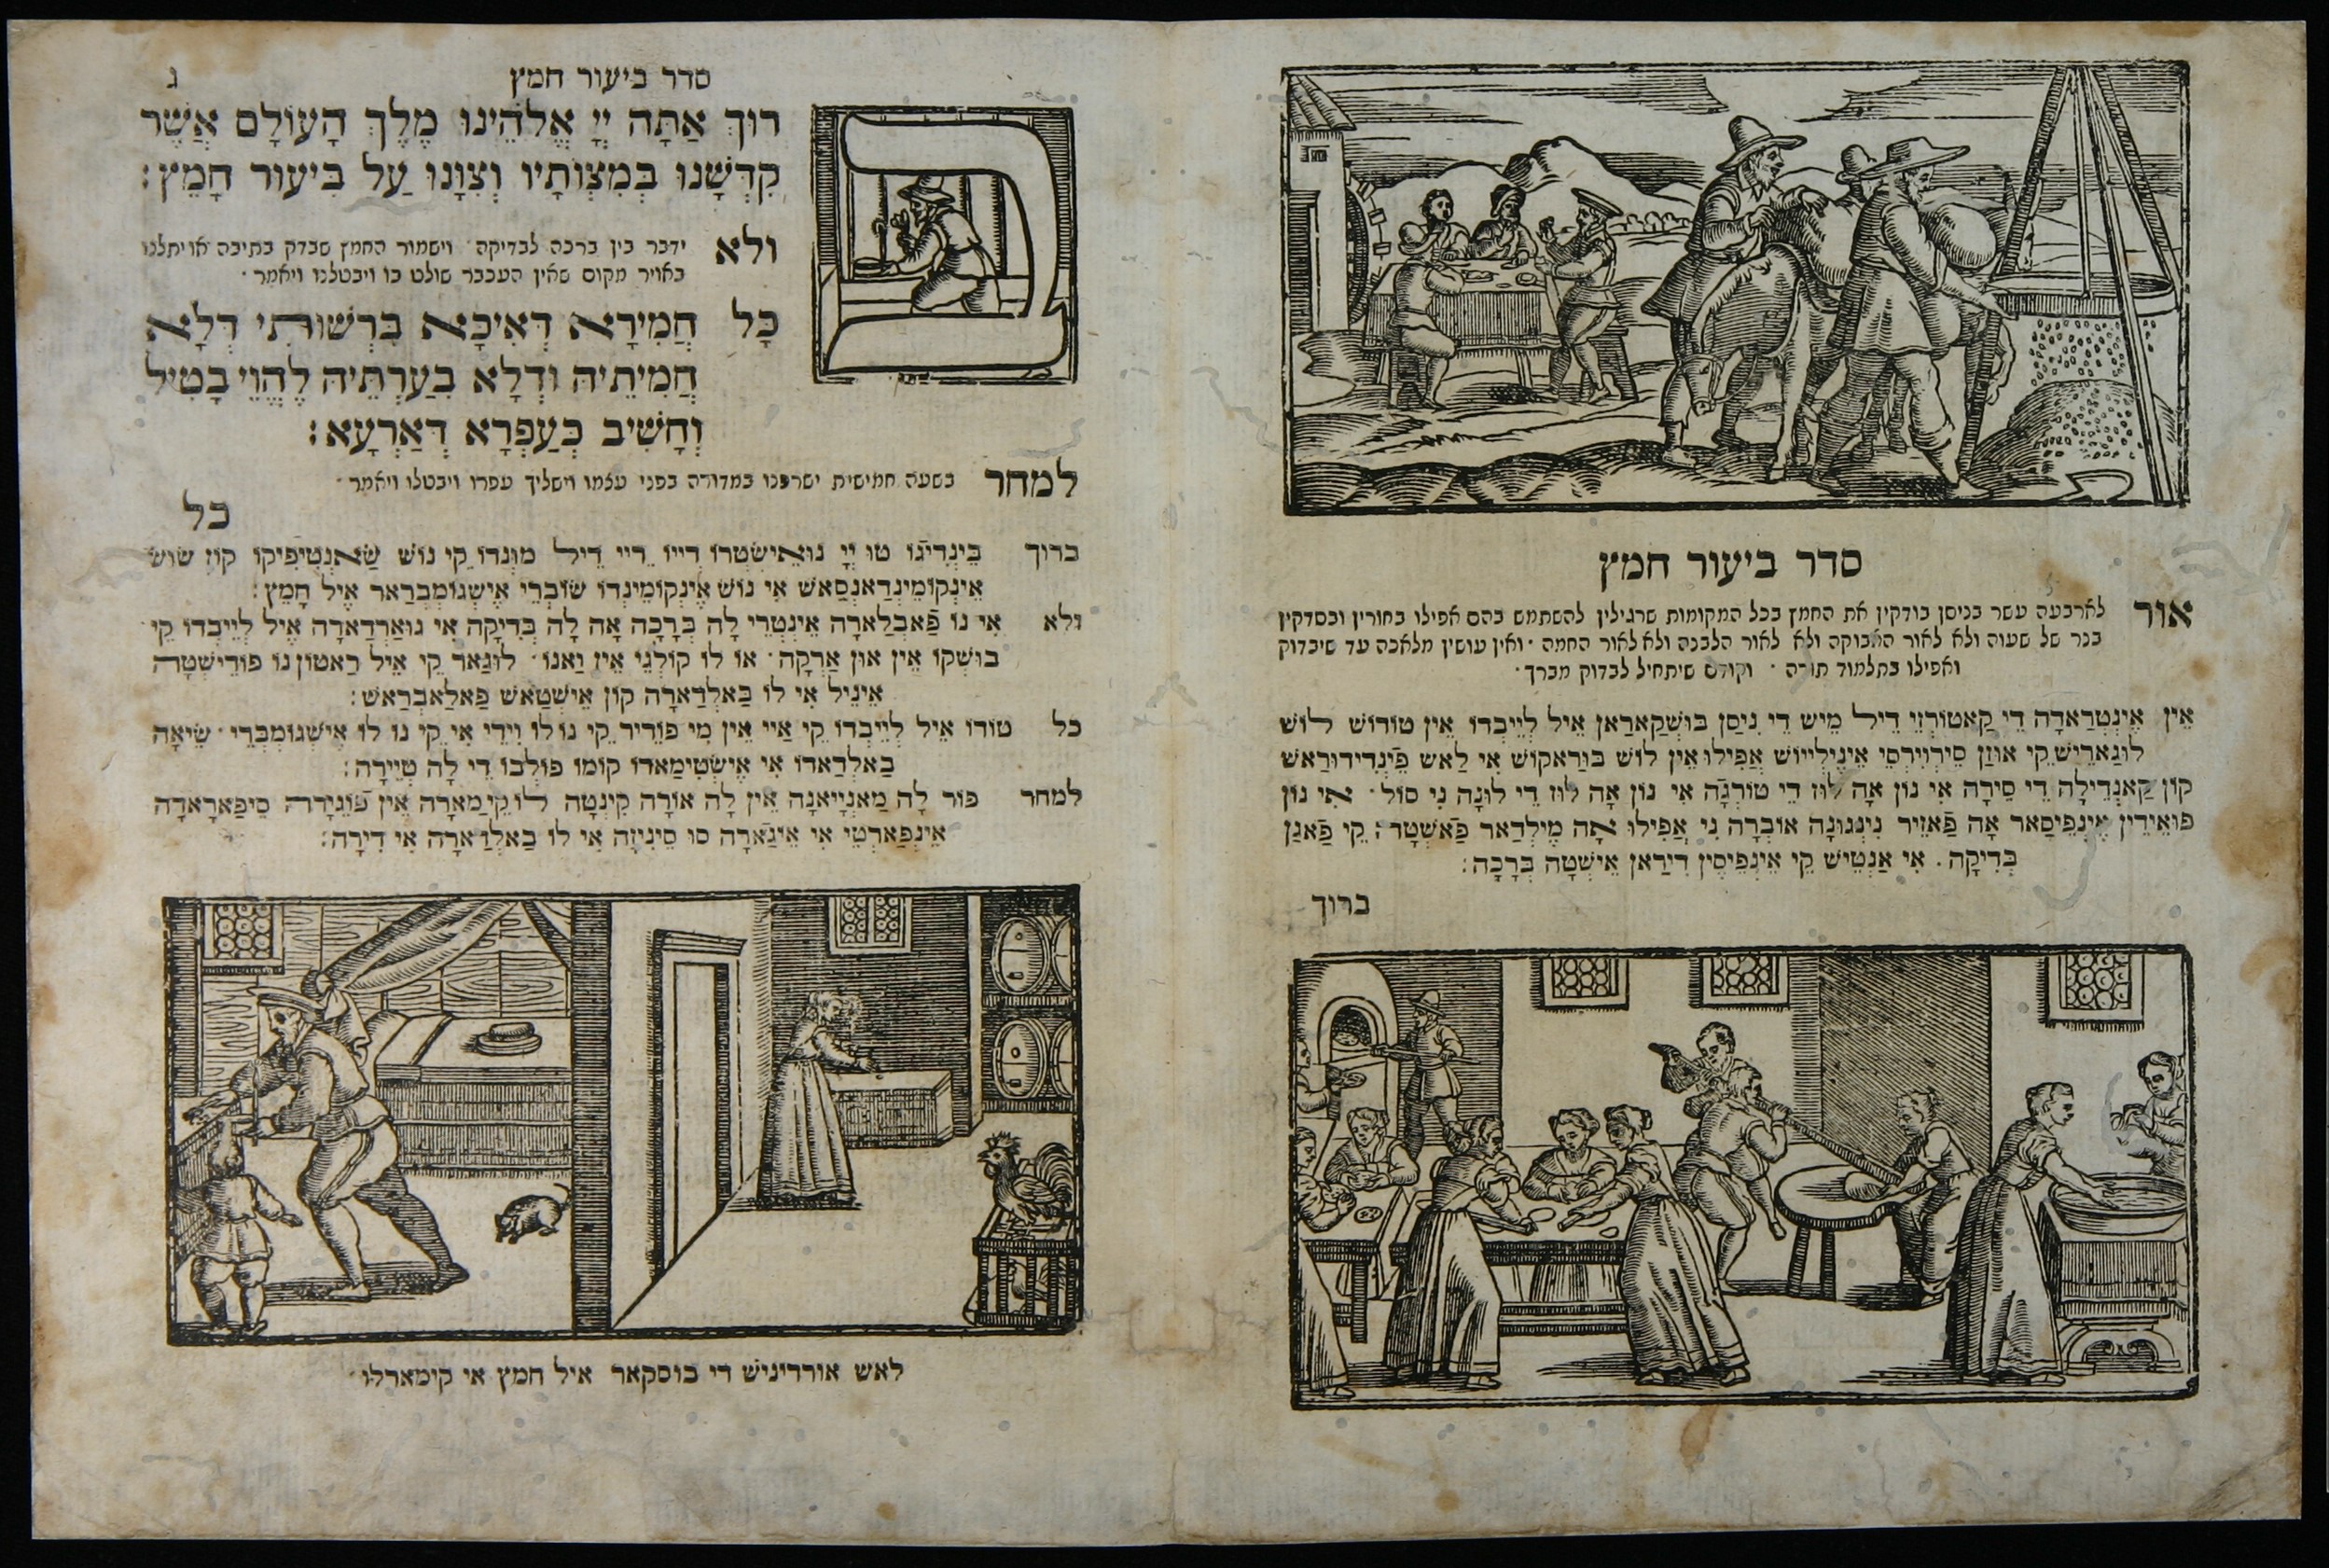 סדר ביעור חמץ
אור לארבעה עשר בניסן בודקין את החמץ בכל המקומות שרגילין להשתמש בהם אפילו בחורין ובסדקין
בנר של שעוה ולא לאור האבוקה ולא לאור הלבנה ולא לאור החמה · ואין עושין מלאכה עד שיבדוק
ואפילו בתלמוד תורה · וקודם שיתחיל לבדוק מברך ·
אֵין אֵינְטְרַאדָה דֵי קַאטוֹרְזֵי דֵיל מֵיש דֵי נִיסָן בּוּשְׁקַארַאן אֵיל לְיֵיבְדוֹ אֵין טוֹדוֹש לוֹש
לוּגַארֵישׁ קֵי אוּזַן סֵירְוִירְסֵי אֵינֵילְייוֹש אֲפִילוּ אֵין לוֹש בּוּרַאקוֹש אִי לַאש פֵֿינְדִידוּרַאש
קוֹן קַאנְדֵילָה דֵי סֵירָה אִי נוֹן אָה לוּז דֵי טוֹרְגָה אִי נוֹן אָה לוּז דֵי לוּנָה נִי סוֹל · אִי נוֹן
פּוּאֵידֵין אֵינְפֵיסַאר אָה פַֿאזֵיר נִינְגוּנָה אוֹבְרָה נִי אֲפִילוּ אָה מֵילְדַאר פַֿאשְׁטָה קֵי פַֿאגַן
בְּדִיקָה · אִי אַנְטֵיש קֵי אֵינְפֵיסֵין דִירַאן אֵישְׁטָה בְּרָכָה :
ברוך
סדר ביעור חמץ ג
בָּרוּךְ אַתָּה יְיָ אֱלֹהֵינוּ מֶלֶךְ הָעוֹלָם אֲשֶׁר
קִדְּשָׁנוּ בְּמִצְוֹתָיו וְצִוָּנוּ עַל בִּיעוּר חָמֵץ :
ולא ידבר בין ברכה לבדיקה · וישמור החמץ שבדק בתיבה או יתלנו
באויר מקום שאין העכבר שולט בו ויבטלנו ויאמר ·
כָּל חֲמִירָא דְּאִיכָּא בִּרְשׁוּתִי דְּלָא
חֲמִיתֵיהּ וּדְלָא בִעַרְתֵּיהּ לֶהֱוֵי בָטֵיל
וְחָשִׁיב כְּעַפְרָא דְּאַרְעָא :
למחר בשעה חמישית ישרפנו במדורה בפני עצמו וישליך עפרו ויבטלו ויאמר ·
כל
ברוך בֵּינְדִיגוֹ טוּ יְיָ נוּאֵישְׂטְרוֹ דְייוֹ רֵיי דֵיל מוּנְדוֹ קֵי נוֹש שַׂאנְטִיפִֿיקוֹ קוֹן שׂוּש
אֵינְקוֹמֵינְדַאנְסַאש אִי נוֹש אֵינְקוֹמֵינְדוֹ שׂוֹבְרֵי אֵישְגוֹמְבְרַאר אֵיל חָמֵץ :
ולא אִי נוֹ פַֿאבְלַארָה אֵינְטְרֵי לָה בְּרָכָה אָה לָה בְּדִיקָה אִי גוּאַרְדַארָה אֵיל לְיֵיבְדוֹ קֵי
בוּשְׁקוֹ אֵין אוּן אַרְקָה · אוֹ לוֹ קוֹלְגֵי אֵין וַאנוֹ · לוּגַאר קֵי אֵיל רַאטוֹן נוֹ פּוֹדֵישְׁטָה
אֵינֵיל אִי לוֹ בַּאלְדַארָה קוֹן אֵישְׁטַאש פַּאלַאבְרַאש :
כל טוֹדוֹ אֵיל לְיֵיבְדוֹ קֵי אַיי אֵין מִי פּוֹדֵיר קֵי נוֹ לוֹ וִידֵי אִי קֵי נוֹ לוֹ אֵישְׁגוֹמְבְּרֵי · שֵׂיאָה
בַּאלְדַאדוֹ אִי אֵישְׂטִימַאדוֹ קוֹמוֹ פּוֹלְבוֹ דֵי לָה טְיֵירָה :
למחר פּוֹר לָה מַאנְייַאנָה אֵין לָה אוֹרָה קִינְטָה לוֹ קֵימַארָה אֵין פֿוֹגֵירָה סֵיפַּארָאדָה
אֵינְפַּארְטֵי אִי אֵיגַארָה סוּ סֵינִיזָה אִי לוֹ בַּאלְדַארָה אִי דִירָה :
לאש אורדיניש די בוסקאר איל חמץ אי קימארלו ·